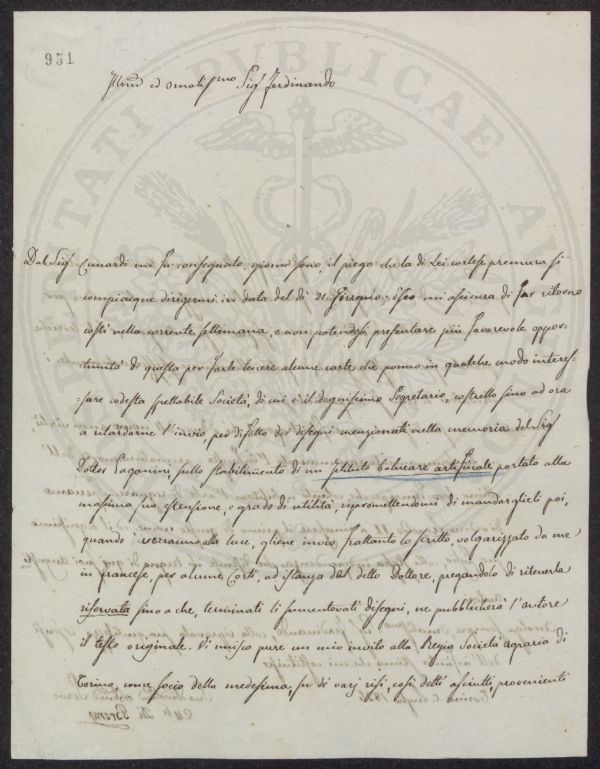 951
Illmo ed ornatissmo Sigr Ferdinando
Dal Sigr Cunardi mi fu consegnato, giorni sono, il piego che la di Lei cortese premura si
compiacque dirigermi in data del dì 21 Esso mi assicura di far ritorno
costì nella corrente settimana, e non potendosi presentare più favorevole oppor-
tunità di questa per farle tenere alcune carte che ponno in qualche modo interes-
sare codesta spettabile Società, di cui è il degnissimo Segretario, costretto sino ad ora
a ritardarne l'invio, per difetto dei disegni menzionati nella memoria del Sigr
Dottor Paganini, sullo stabilimento di un istituto balneare artificiale, portato alla
massima sua estensione, e grado di utilità ripromettendomi di mandarglieli poi,
quando verranno alla luce, gliene invio frattanto lo scritto, volgarizzato da me
in francese, per alcune Corti, ad istanza del detto Dottore, pregandolo di ritenerla
riservata sino a che, terminati li summentovati disegni, ne pubblicherà l'autore
il testo originale. Vi unisco pure un mio invito alla Regia Società agraria di
Torino, come socio della medesima, su di varj risi, così detti asciutti, provenienti